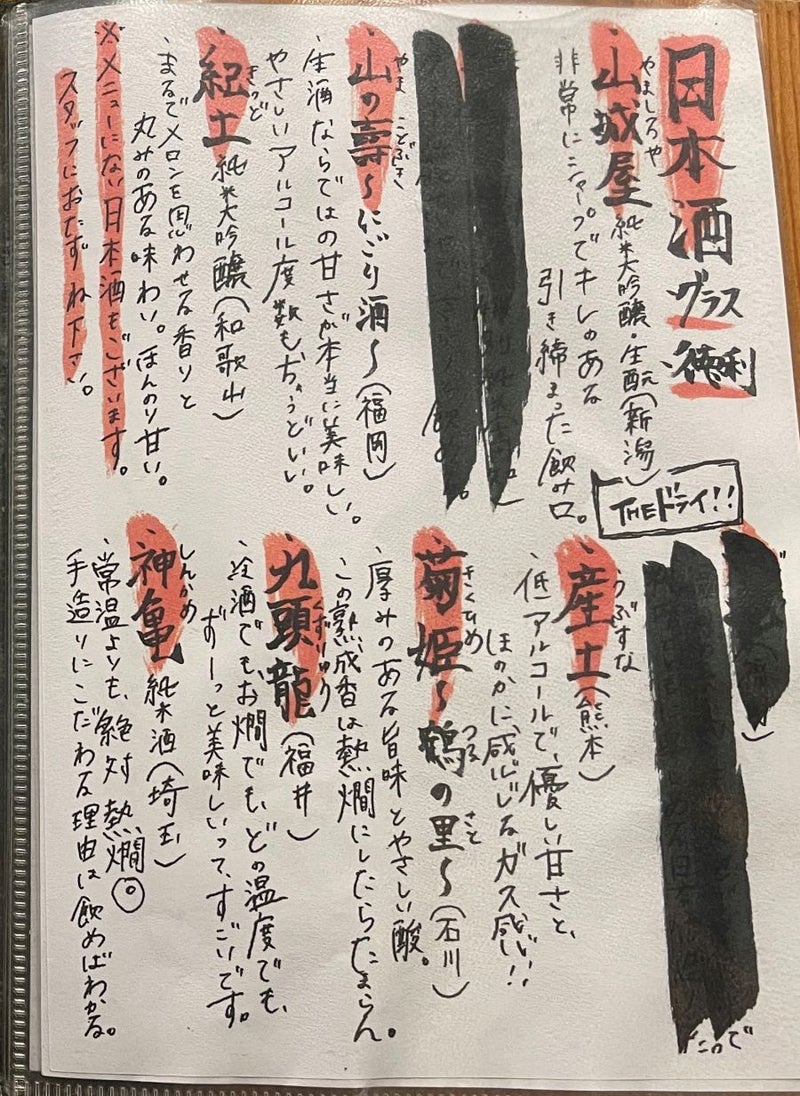 日本酒 グラス 徳利
やましろや
山城屋 純米大吟醸・生酛(新潟)
非常にシャープでキレのある
引き締まった飲み口。
THEドライ!!
やま ことぶき
山の壽〜にごり酒〜(福岡)
生酒ならではの甘さが本当に美味しい。
やさしいアルコール度数もちょうどいい。
きっど
紀土 純米大吟醸(和歌山)
まるでメロンを思わせる香りと
丸みのある味わい。ほんのり甘い。
※メニューにない日本酒もございます。
スタッフにおたずね下さい。
うぶすな
産土(熊本)
低アルコールで、優しい甘さと、
ほのかに感じるガス感!!
きくひめ つる さと
菊姫〜鶴の里〜(石川)
厚みのある旨味とやさしい酸。
この熟成香は熱燗にしたらたまらん。
くずりゅう
九頭龍(福井)
冷酒でもお燗でも、どの温度でも、
ずーっと美味しいって、すごいです。
しんかめ
神亀 純米酒(埼玉)
常温よりも、絶対熱燗◎
手造りにこだわる理由は飲めばわかる。